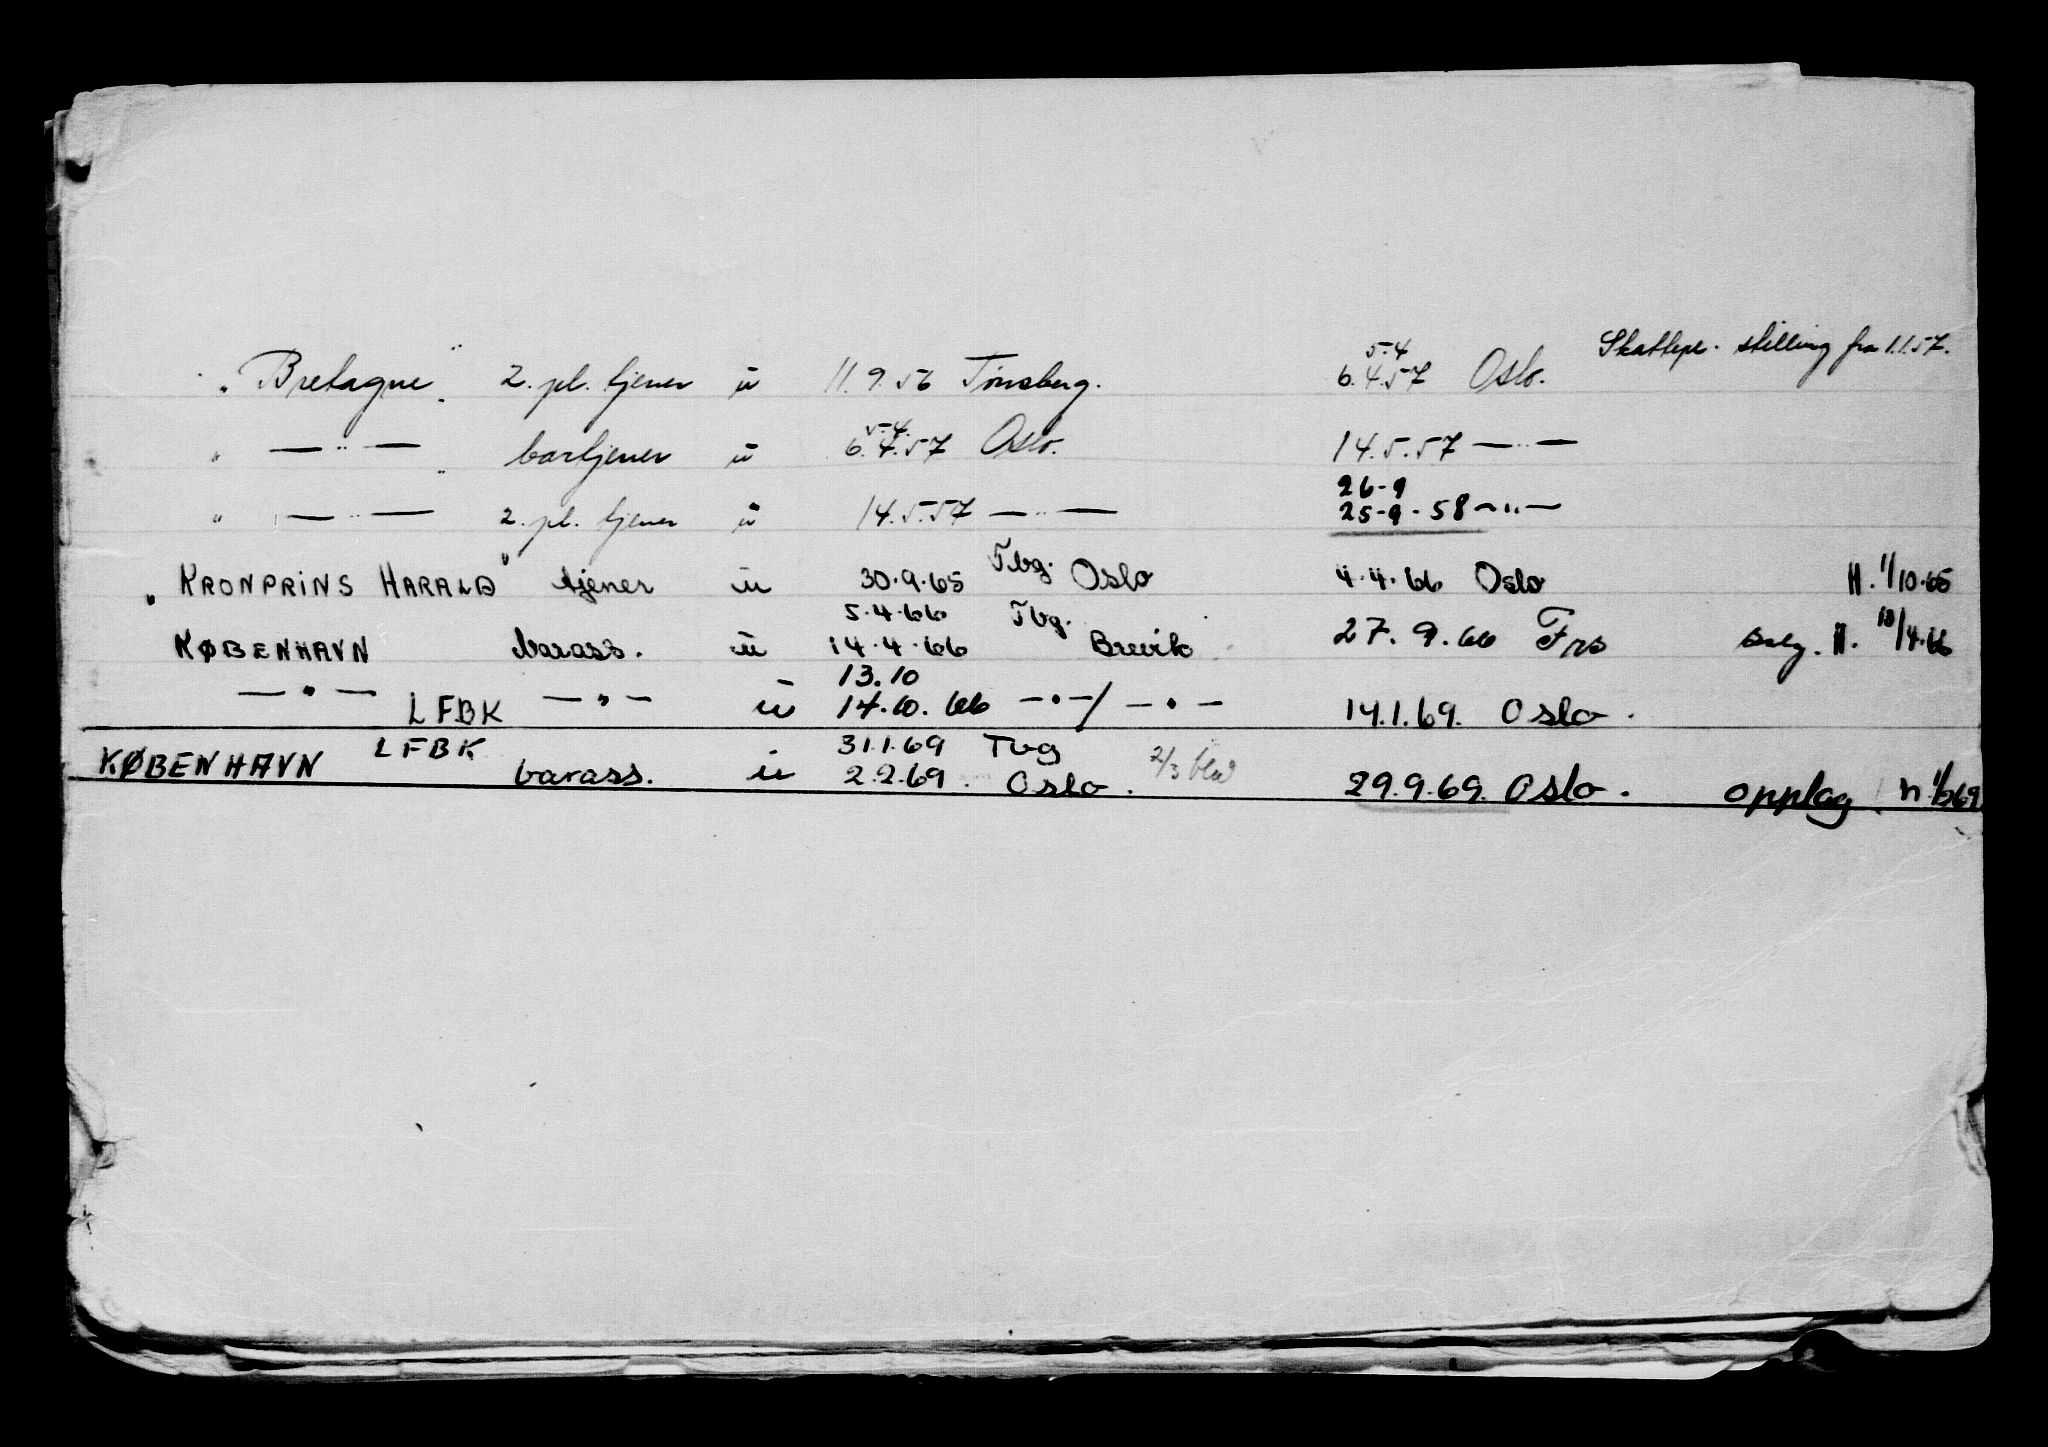 Skattepl. stilling fra 1.1.57.
5-4
"Bretagne" 2. pl. tjener u 11.9.56 Tønsberg. 6.4.57 Oslo.
5-4.
" — " — bartjener u 6.4.57 Oslo. 14.5.57 — " —
26-9
" — " — 2. pl. tjener u 14.5.57 — " — 25-9-58 — " —
"KRONPRINS HARALD" tjener u 30.9.65 Tbg. Oslo 4.4.66 Oslo H. 1/10.65
5.4.66 Tbg.
KØBENHAVN barass. u 14.4.66 Brevik 27.9.66 Fra H. 4.66
13.10
— " — LFBK — " — u 14.10.66 — " — / — " — 14.1.69. Oslo.
LFBK 31.1.69 Tbg
KØBENHAVN barass. u 2.2.69. Oslo. 2/3 29.9.69. Oslo. opplag